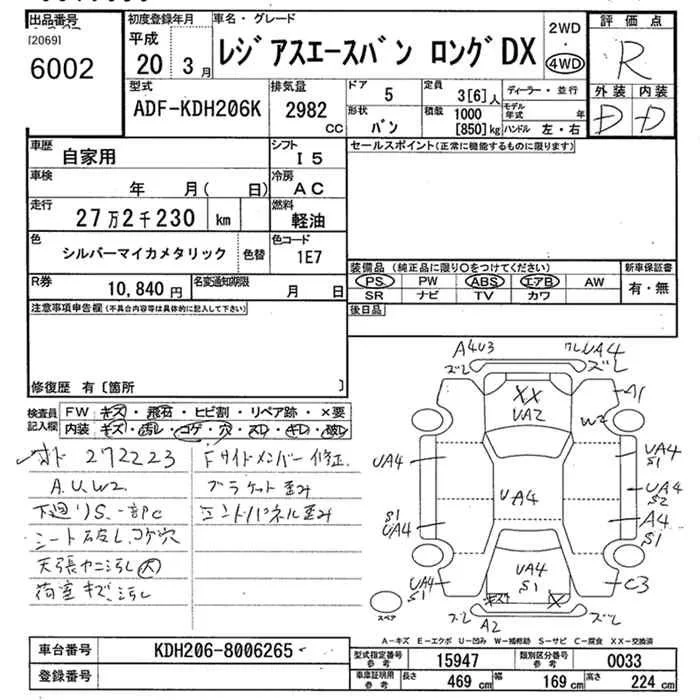 出品番号
[2069]
6002
初度登録年月
平成
20 3月
車名・グレード
レジアスエースバン ロングDX
2WD
・
4WD
評価点
R
外装 内装
D D
型式
ADF-KDH206K
排気量
2982
CC
ドア
5
形状
バン
定員
3[6]人
積載
1000
[850]kg
ディーラー・並行
モデル年式 年
ハンドル 左・右
車歴
自家用
シフト
I5
車検
年 月( 日)
冷房
AC
走行
27万2千230 km
燃料
軽油
色
シルバーマイカメタリック
色替
色コード
1E7
R券
10,840円
名変通知期限
月 日
セールスポイント(正常に機能するものに限ります)
装備品 (純正品に限り○をつけてください)
PS PW ABS エアB AW
SR ナビ TV カワ
新車保証書
有・無
後日品
注意事項申告欄(不具合内容等は具体的に記入して下さい)
修復歴 有〔箇所 〕
検査員
記入欄
FW キズ・飛石・ヒビ割・リペア跡・×要
内装 キズ・汚レ・コゲ・穴・スレ・キレ・破レ
272223
A.U.W2
下廻りS
シート破レ、コゲ穴
天張ヤニ汚レ(大)
荷室キズ、汚レ
Fサイドメンバー修正
ブラケット歪み
エンドパネル歪み
A4U3
UA4
ズレ
ズレ
A1
XX
UA2
W2
UA4
UA4
S1
UA4
UA4
S2
S1
UA4
A4
S1
UA4
S1
UA4
S1
C3
キズ X
ズレ
A2
ズレ
スペア
A-キズ E-エクボ U-凹み W-補修跡 S-サビ C-腐食 XX-交換済
車台番号
KDH206-8006265
登録番号
型式指定番号
参考
15947
類別区分番号
参考
0033
車庫証明用
参考
長さ 469 cm 幅 169 cm 高さ 224 cm